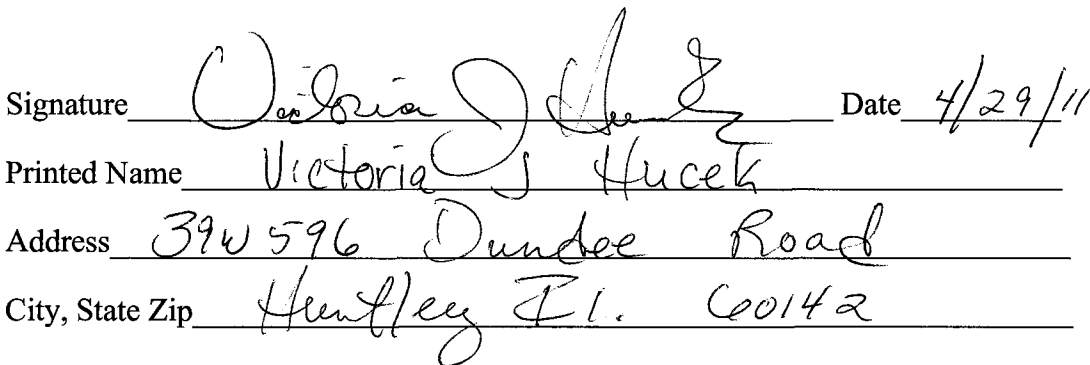 Signature Victoria J Hucek Date 4/29/11
Printed Name Victoria J Hucek
Address 39W596 Dundee Road
City, State Zip Huntley Il. 60142